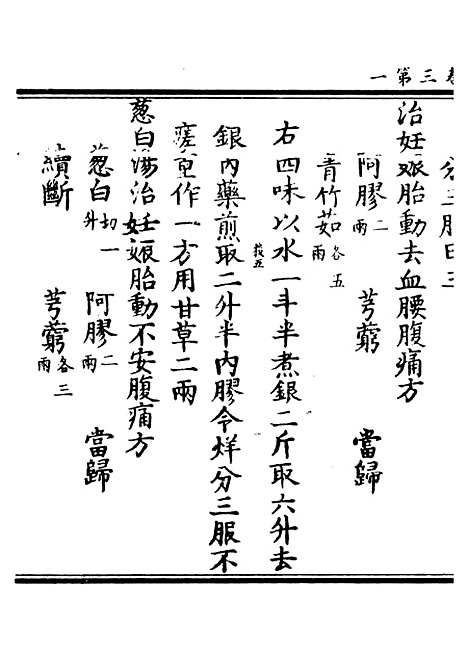 卷三第一
分三服日三
治妊娠胎動去血腰腹痛方
阿膠二兩 芎藭 當歸
青竹茹各五兩
右四味以水一斗半煮銀二斤取六升去
銀內藥煎取二升半內膠令烊分三服不
瘥重作一方用甘草二兩
葱白湯治妊娠胎動不安腹痛方
葱白切一升 阿膠二兩 當歸
續斷 芎藭各三兩